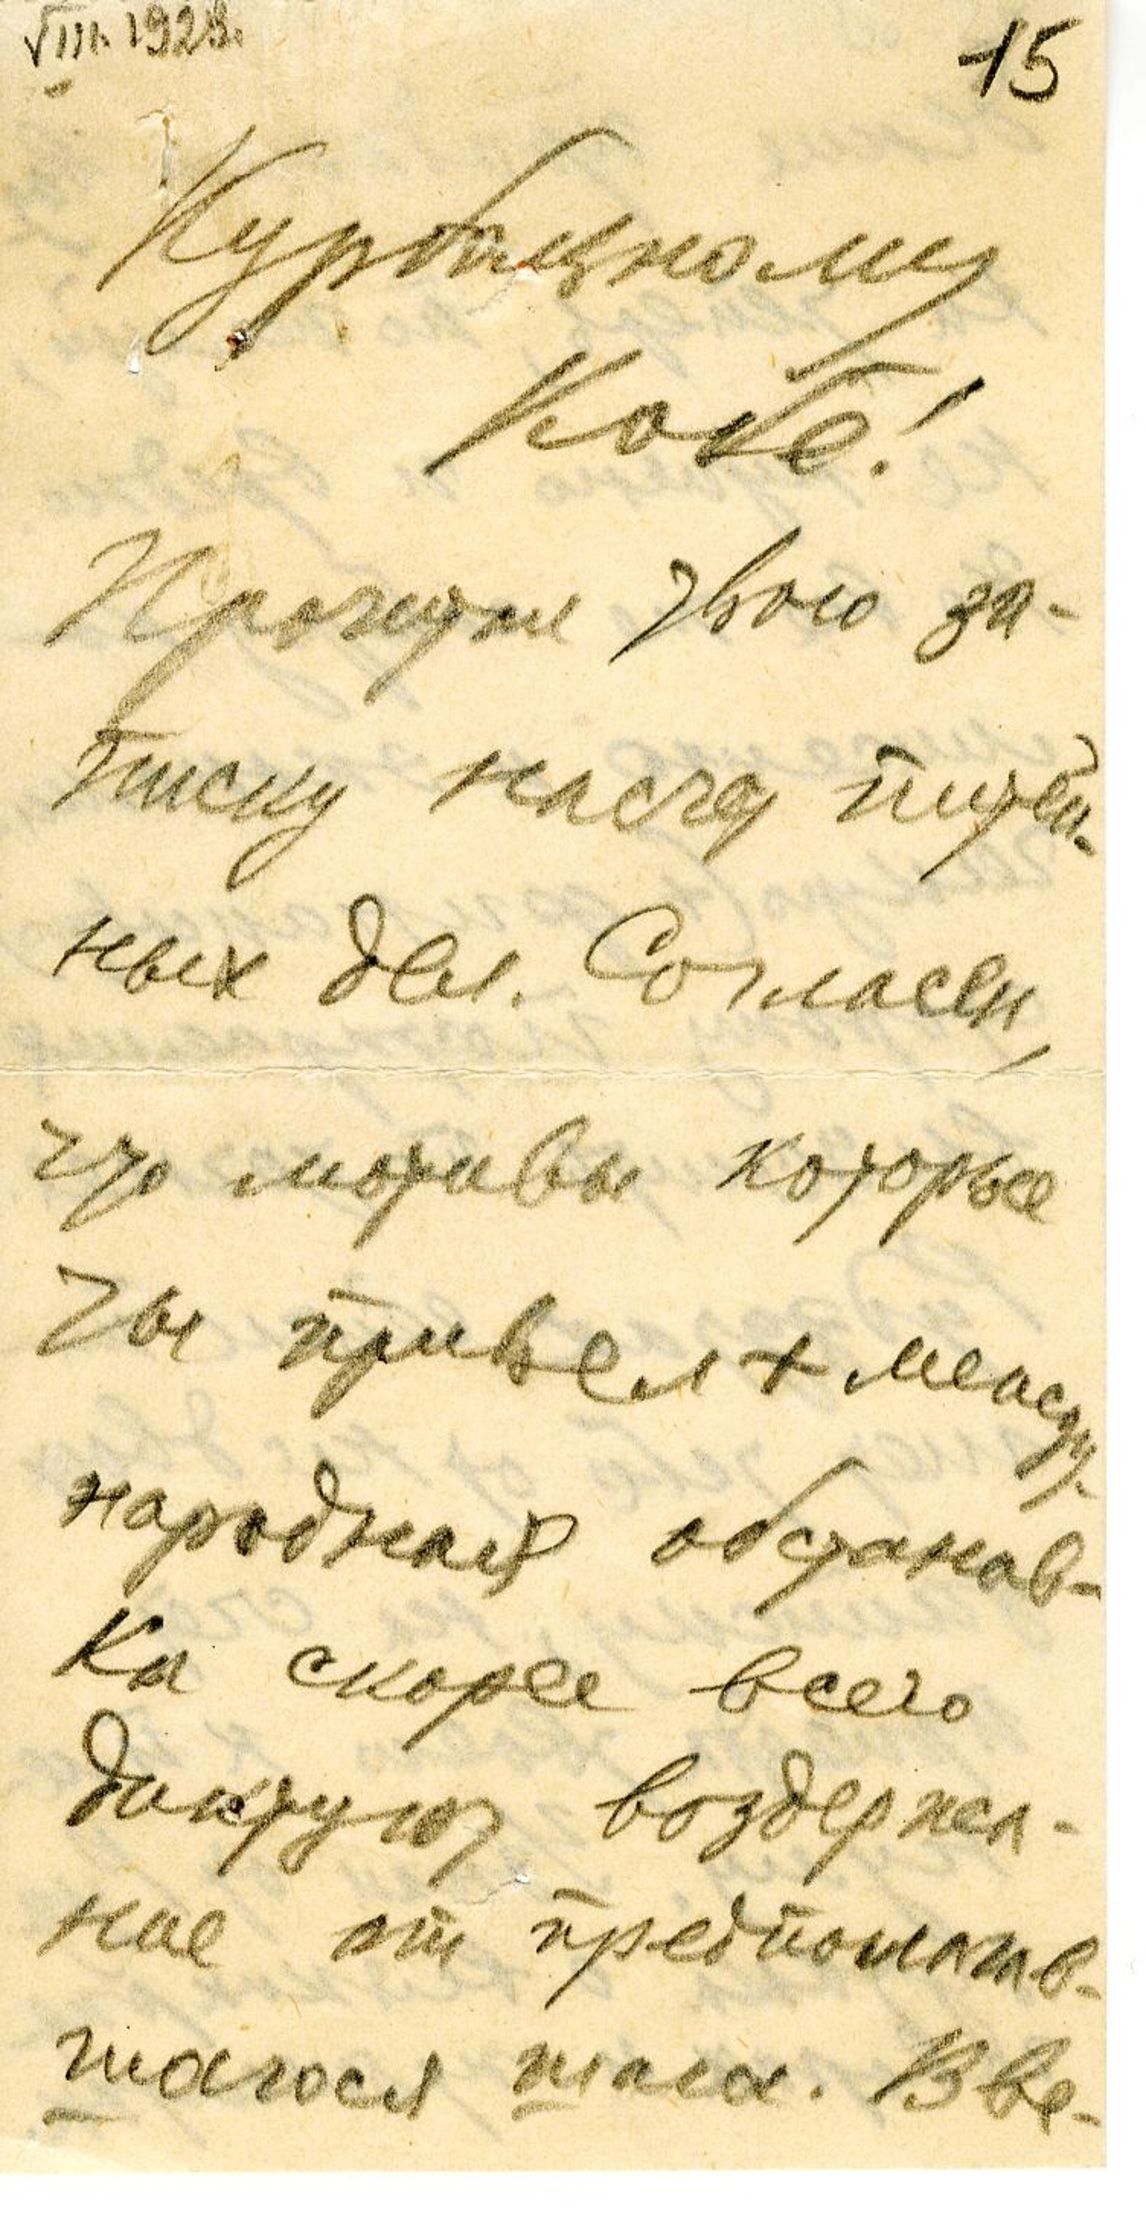 VIII. 1928.
15
Курбацкому
Кобе!
Прочитал твою за-
писку насчет питей-
ных дел. Согласен,
что мотивы которые
ты привел + между-
народная обстанов-
ка скорее всего
диктуют воздержа-
ние от предполагав-
шагося шага. Вве-